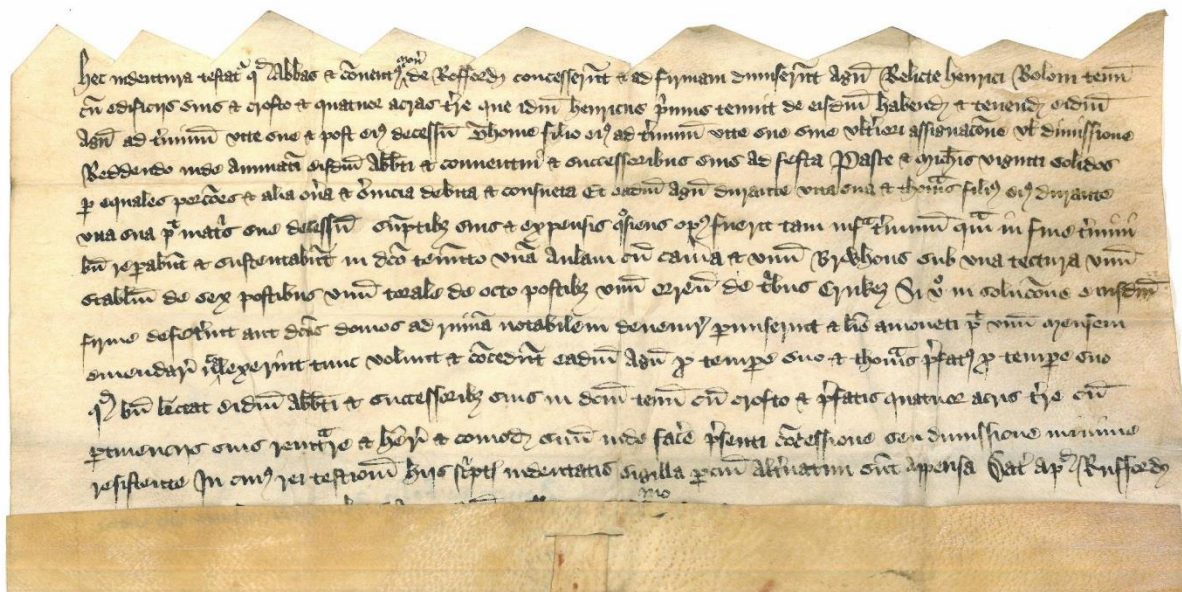 Hec indentura testat' q'd Abbas & Convent' de Rufford concesserūt & ad firmam dimiserūt Agn' Relicte Henrici Bolom ten'
cū edificiis suis & crofto & quatuor acras t're que idm̄ Henricus p'mus tenuit de eisdm̄ habend' & tenend' eidm̄
Agn' ad t'minū vite sue & post ei' decessū Thome filio ei' ad t'minū vite sue sine ult'iori assignacōne vl' dimissione
Reddendo inde annuatī eisdm̄ Abb'ti & conventui & successoribus suis ad festa Pasce & Mich'is viginti solidos
p' equales porcōes & alia on'a & s'vicia debita & consueta Et eadm̄ Agn' durante vita sua & Thomas filius ei' durante
vita sua p' mat's sue decessū sūptib' suis & expensis q'ciens op' fuerit tam inf' t'minū q'm in fine t'mini
bn̄ rep'abūt & sustentabūt in dc̄o ten'to unā Aulam cū cam'a & unū Brewhous sub una tectura unū
stablm̄ de sex postibus unū torale de octo postib' unū orreū de t'bus Crukes Si v'o in solucōne eiusdm̄
firme defec'int aut dc̄as domos ad ruinā notabilem devenir' p'miserint & l'ie amoneti p' unū mensem
emendar' neglexerint tunc volunt & cōcedūt eadm̄ Agn' p' temp'e suo & Thomas p'fat' p' temp'e suo
q'd bn̄ liceat eidm̄ Abb'ti & successorib' suis in dc̄m ten' cū crofto & p'fatis quatuor acris t're cū
p'tinenciis suis rent'are & h'er' & comod' suū inde fac'e p'senti cōcessione seu dimissione minime
resistente In cui' rei testioniū hiis sc'ptis indentatis sigilla p'ciū alt'natim sūt appensa Dat' ap'd Rufford